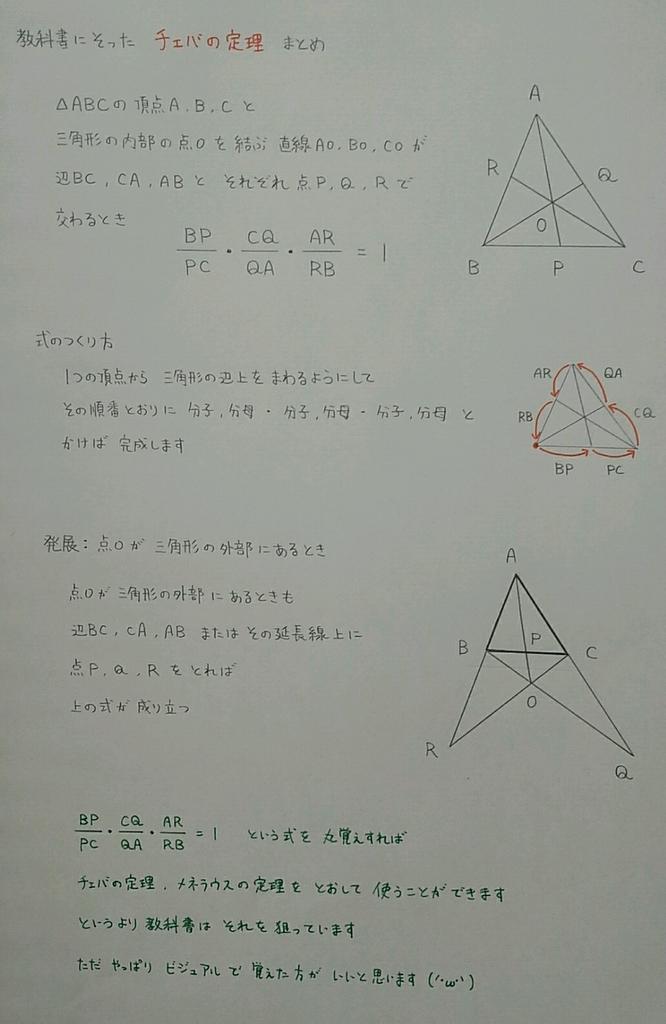 教科書にそった チェバの定理 まとめ
△ABCの 頂点A,B,Cと
三角形の内部の点Oを 結ぶ 直線AO,BO,COが
辺BC,CA,ABと それぞれ 点P,Q,Rで
交わるとき
BP/PC・CQ/QA・AR/RB = 1
A
R
Q
O
B
P
C
式のつくり方
1つの頂点から 三角形の辺上を まわるようにして
その順番どおりに 分子,分母・分子,分母・分子,分母と
かけば 完成します
AR
QA
RB
CQ
BP
PC
発展:点Oが 三角形の外部にあるとき
点Oが三角形の外部にあるときも
辺BC,CA,AB またはその延長線上に
点P,Q,Rをとれば
上の式が成り立つ
A
B
P
C
O
R
Q
BP/PC・CQ/QA・AR/RB = 1 という式を 丸覚えすれば
チェバの定理,メネラウスの定理を とおして 使うことができます
というより 教科書は それを 狙っています
ただ やっぱり ビジュアルで 覚えた方が いいと思います (´・ω・`)